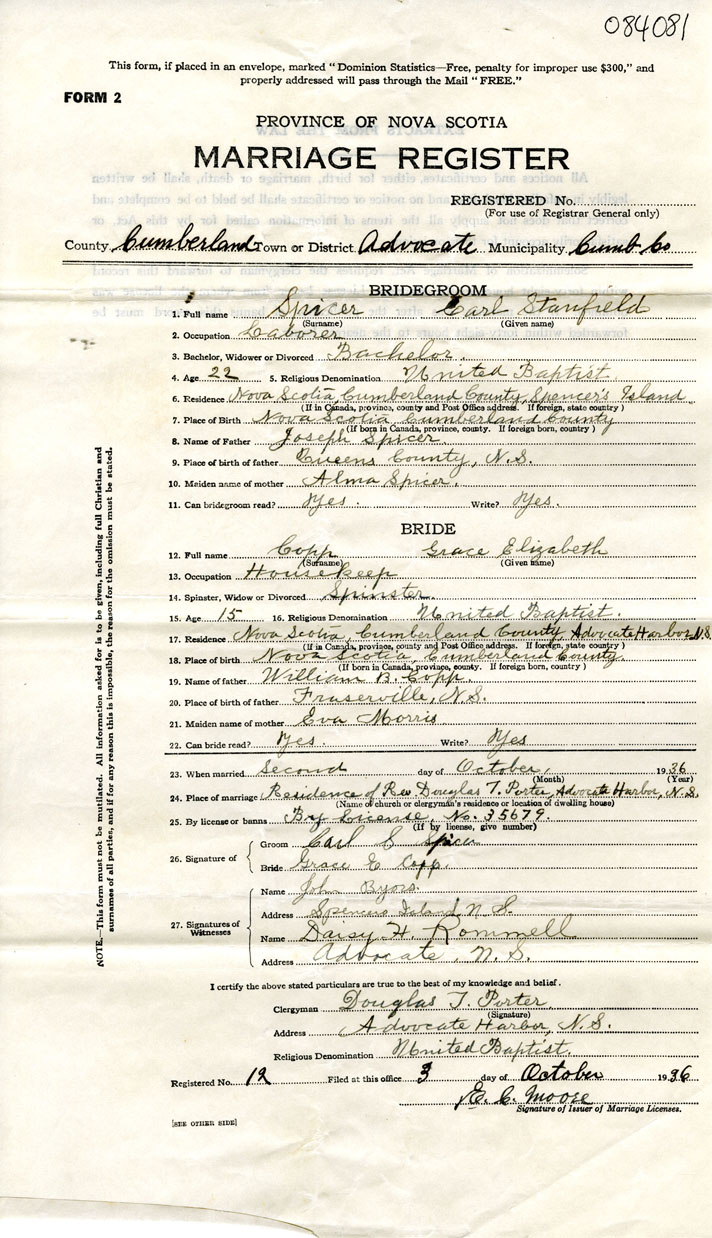 084081
This form, if placed in an envelope, marked "Dominion Statistics—Free, penalty for improper use $300," and
properly addressed will pass through the Mail "FREE."
FORM 2
PROVINCE OF NOVA SCOTIA
MARRIAGE REGISTER
REGISTERED No.
(For use of Registrar General only)
County Cumberland Town or District Advocate Municipality Cumb. Co
BRIDEGROOM
1. Full name Spicer Carl Stanfield
(Surname) (Given name)
2. Occupation Laborer
3. Bachelor, Widower or Divorced Bachelor.
4. Age 22 5. Religious Denomination United Baptist.
6. Residence Nova Scotia, Cumberland County, Spencer's Island
(If in Canada, province, county and Post Office address. If foreign, state country)
7. Place of Birth Nova Scotia Cumberland County
(If born in Canada, province, county. If foreign born, country)
8. Name of Father Joseph Spicer
9. Place of birth of father Queens County, N.S.
10. Maiden name of mother Alma Spicer.
11. Can bridegroom read? Yes. Write? Yes.
BRIDE
12. Full name Copp Grace Elizabeth
(Surname) (Given name)
13. Occupation Housekeep
14. Spinster, Widow or Divorced Spinster.
15. Age 15 16. Religious Denomination United Baptist.
17. Residence Nova Scotia, Cumberland County, Advocate Harbor N.S.
(If in Canada, province, county and Post Office address. If foreign, state country)
18. Place of birth Nova Scotia, Cumberland County.
(If born in Canada, province, county. If foreign born, country)
19. Name of father William B. Copp.
20. Place of birth of father Fraserville, N.S.
21. Maiden name of mother Eva Morris
22. Can bride read? Yes. Write? Yes
23. When married Second day of October, 1936
(Month) (Year)
24. Place of marriage Residence of Rev. Douglas T. Porter, Advocate Harbor, N.S.
(Name of church or clergyman's residence or location of dwelling house)
25. By license or banns By License, No. 35679.
(If by license, give number)
26. Signature of Groom Carl S Spicer
Bride Grace E Copp.
27. Signatures of Witnesses Name John Byors.
Address Spencers Island N.S.
Name Daisy H. Rommell
Address Advocate, N.S.
I certify the above stated particulars are true to the best of my knowledge and belief.
Clergyman Douglas T. Porter.
(Signature)
Address Advocate Harbor, N.S.
Religious Denomination United Baptist.
Registered No. 12 Filed at this office 3 day of October 1936
E. C. Moose
Signature of Issuer of Marriage Licenses.
[SEE OTHER SIDE]
NOTE.—This form must not be mutilated. All information asked for is to be given, including full Christian and
surnames of all parties, and if for any reason this is impossible, the reason for the omission must be stated.